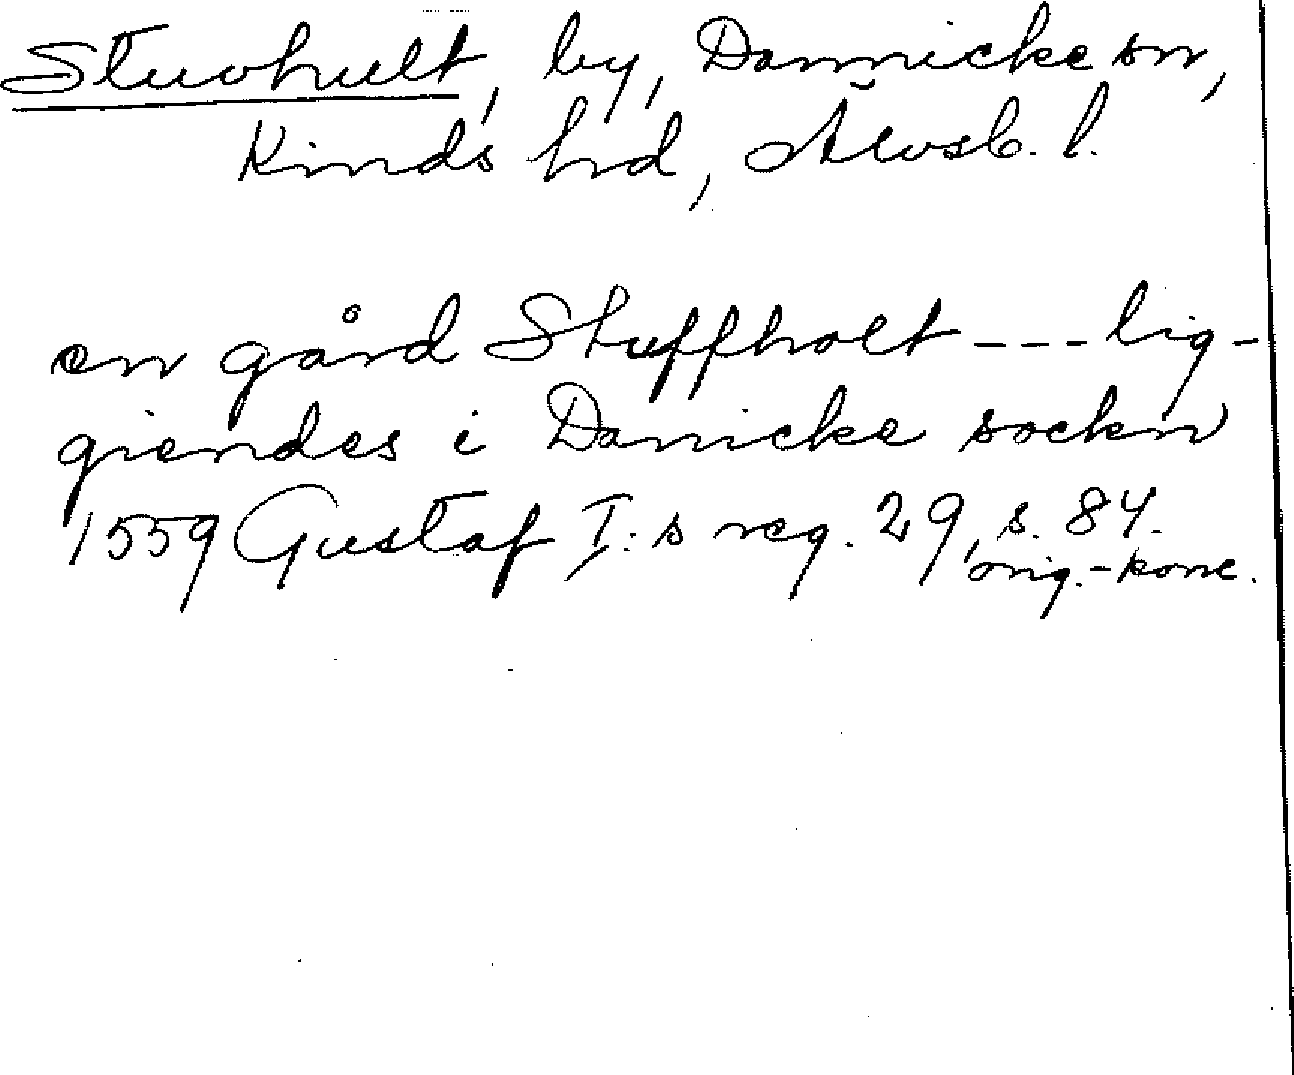 Stuvhult, by, Dannicke sn,
Kinds hd, Älvsb. l.
en gård Stuffholt --- lig-
giendes i Danicke sockn
1559 Gustaf I:s reg. 29, s. 84.
orig.-konc.